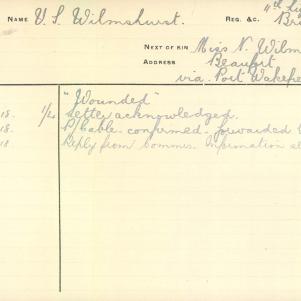 NAME V. S. Wilmshurst. REG. &C.
NEXT OF KIN Miss N. Wilm
ADDRESS Beaufort
via Port Wakefie
"Wounded"
18. 1/24 Letter acknowledged.
18. P/Cable confirmed. forwarded
18 Reply from Commns. Information